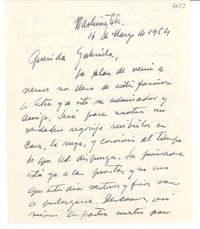 Washington
16 de Mayo de 1954
Querida Gabriela,
Su plan de venir a
vernos nos llena de satisfacción
a Ester y a este su admirador y
amigo. Será para nosotros un
verdadero regocijo recibirlos en
casa, la suya, y convivir el tiempo
de que Ud. disponga. La primavera
está ya a las puertas y no
que estos días ventosos y fríos van
a prolongarse. Deseamos, así